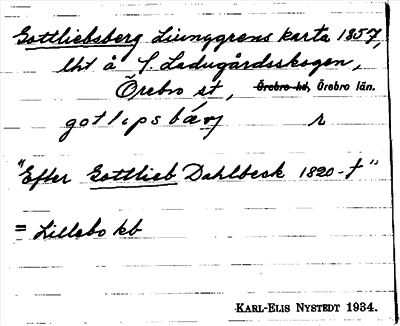 Gottliebsberg Ljunggrens karta 1857,
lht å f. Ladugårdsskogen,
Örebro st, Örebro hd, Örebro län.
gotlipsbærj r
"Efter Gottlieb Dahlbeck 1820-t"
= Lillebo kb
KARL-ELIS NYSTEDT 1934.